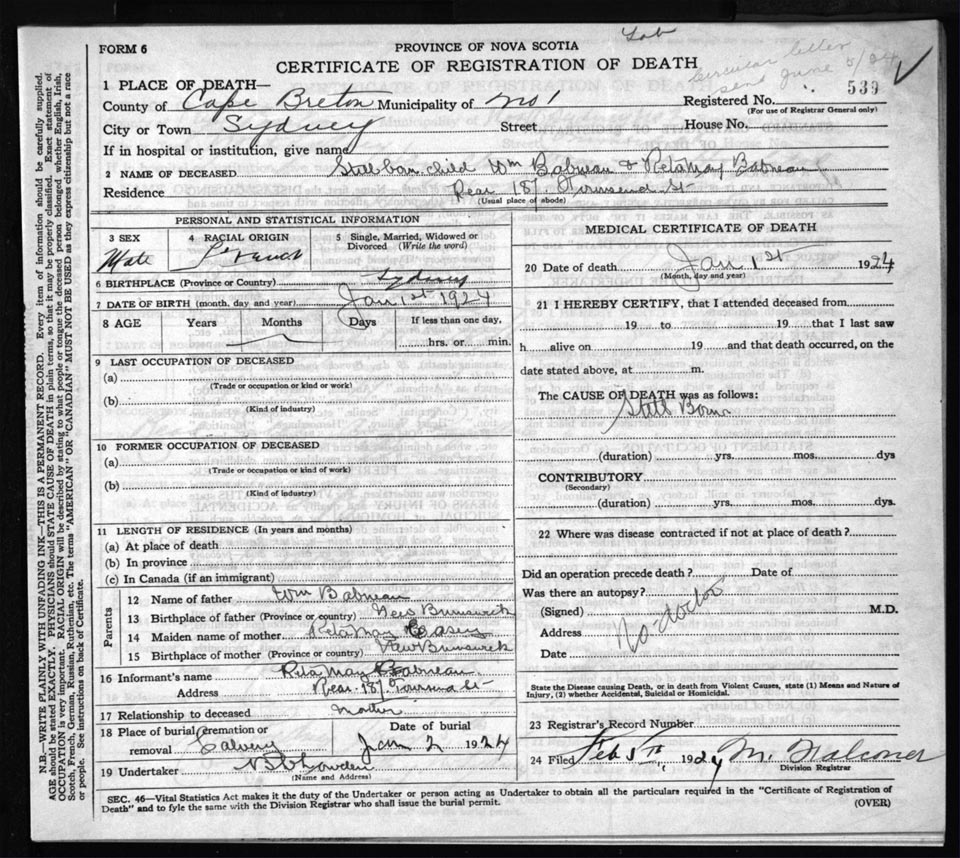 FORM 6
PROVINCE OF NOVA SCOTIA
CERTIFICATE OF REGISTRATION OF DEATH
circular letter
sent June 5/24
1 PLACE OF DEATH—
County of Cape Breton Municipality of No 1
Registered No. 539
(For use of Registrar General only)
City or Town Sydney Street House No.
If in hospital or institution, give name
2 NAME OF DECEASED Still born child Wm Babineau & Reta May Babineau
Residence Rear 187 Townsend St
(Usual place of abode)
PERSONAL AND STATISTICAL INFORMATION
3 SEX 4 RACIAL ORIGIN 5 Single, Married, Widowed or Divorced (Write the word)
Male French
6 BIRTHPLACE (Province or Country) Sydney
7 DATE OF BIRTH (month, day and year) Jan 1st 1924
8 AGE Years Months Days If less than one day,
hrs. or min.
9 LAST OCCUPATION OF DECEASED
(a)
(Trade or occupation or kind or work)
(b)
(Kind of industry)
10 FORMER OCCUPATION OF DECEASED
(a)
(Trade or occupation or kind or work)
(b)
(Kind of industry)
11 LENGTH OF RESIDENCE (In years and months)
(a) At place of death
(b) In province
(c) In Canada (if an immigrant)
Parents
12 Name of father Wm Babineau
13 Birthplace of father (Province or country) New Brunswick
14 Maiden name of mother Reta May Casey
15 Birthplace of mother (Province or country) New Brunswick
16 Informant's name Rita May Babineau
Address Rear 187 Townsend St
17 Relationship to deceased Mother
18 Place of burial, cremation or removal Calvery
Date of burial Jan 2 1924
19 Undertaker
(Name and Address)
MEDICAL CERTIFICATE OF DEATH
20 Date of death Jan 1st 1924
(Month, day and year)
21 I HEREBY CERTIFY, that I attended deceased from
19 to 19 that I last saw
h alive on 19 and that death occurred, on the
date stated above, at m.
The CAUSE OF DEATH was as follows:
Still Born
(duration) yrs. mos. dys
CONTRIBUTORY
(Secondary)
(duration) yrs. mos. dys.
22 Where was disease contracted if not at place of death?
Did an operation precede death? Date of
Was there an autopsy?
(Signed) M.D.
Address No doctor
Date
State the Disease causing Death, or in death from Violent Causes, state (1) Means and Nature of
Injury, (2) whether Accidental, Suicidal or Homicidal.
23 Registrar's Record Number
24 Filed Feb 5th, 1924 M.
Division Registrar
SEC. 46—Vital Statistics Act makes it the duty of the Undertaker or person acting as Undertaker to obtain all the particulars required in the "Certificate of Registration of
Death" and to fyle the same with the Division Registrar who shall issue the burial permit.
(OVER)
N.B.—WRITE PLAINLY WITH UNFADING INK—THIS IS A PERMANENT RECORD. Every item of information should be carefully supplied.
AGE should be stated EXACTLY. PHYSICIANS should STATE CAUSE OF DEATH in plain terms, so that it may be properly classified. Exact statement of
OCCUPATION is very important. RACIAL ORIGIN will be described by stating to what people or tongue the deceased person belonged whether English, Irish,
Scotch, French, German, Russian, Ruthenian, etc. The terms "AMERICAN" OR "CANADIAN" MUST NOT BE USED as they express citizenship but not a race
or people. See instructions on back of Certificate.